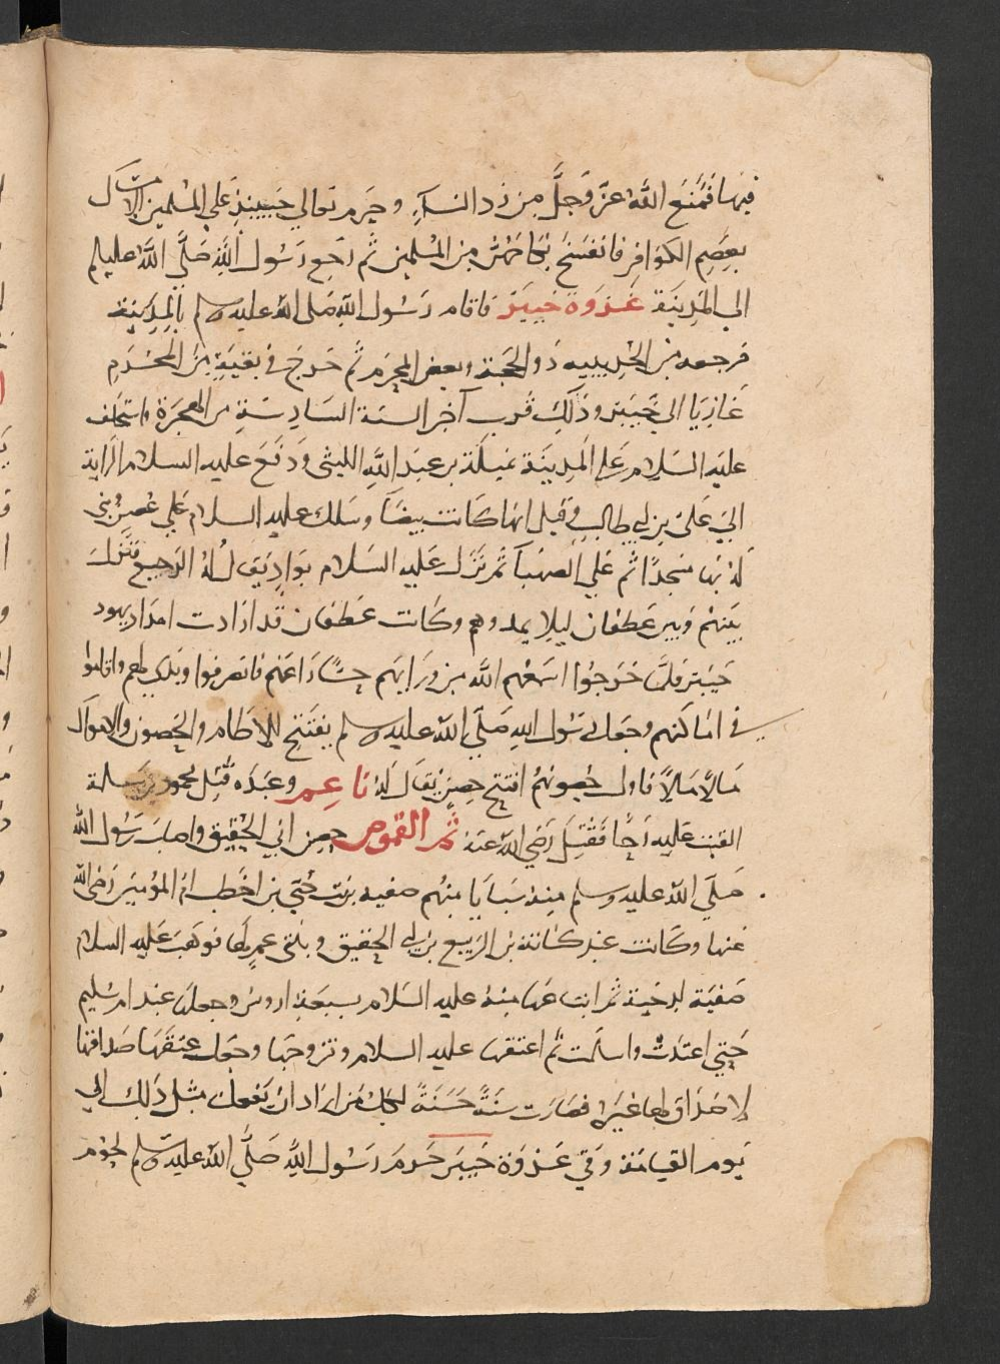 فيها فمنع الله عز وجل من رد النساء وحرم تعالى حينيذ على المسلمين الامساك
بعصم الكوافر فانفسخ نكاحهن من المسلمين ثم رجع رسول الله صلى الله عليه وسلم
الى المدينة غزوة خيبر فاقام رسول الله صلى الله عليه وسلم بالمدينة
مرجعه من الحديبيه ذو الحجة وبعض المحرم ثم خرج في بقية من المحرم
غازيا الى خيبر وذلك قرب آخر السنة السادسة من الهجرة واستخلف
عليه السلام على المدينة نميلة بن عبد الله الليثي ودفع عليه السلام الراية
الى على بن ابي طالب وقيل انها كانت بيضآ وسلك عليه السلام على عصر وبنى
له بها مسجدا ثم على الصهبآ ثم نزل عليه السلام بواد يقال له الرجيع فنزل
بينهم وبين غطفان ليلا يمدوهم وكانت غطفان قد ارادت امداد يهود
خيبر فلما خرجوا اسمعهم الله من ورايهم حسا راعهم فانصرفوا وبدى لهم واقاموا
في اماكنهم وجعل رسول الله صلى الله عليه وسلم يفتتح الاطام والحصون والاموال
مالا مالا فاول حصونهم افتتح حصن يقال له ناعم وعنده قتل محمود بن مسلمة
القيت عليه رحا فقتل رضي الله عنه ثم القموص حصن ابي الحقيق واصاب رسول الله
صلى الله عليه وسلم منه سبايا منهم صفيه بنت حيي بن اخطب ام المؤمنين رضي الله
عنها وكانت عند كنانة بن الربيع بن ابي الحقيق وبنتي عم لها فوهب عليه السلام
صفية لدحية ثم ابتاعها منه عليه السلام بسبعة اروس وجعلها عند ام سليم
حتى اعتدت واسلمت ثم اعتقها عليه السلام وتزوجها وجعل عتقها صداقها
لا صداق لها غيره فصارت سنة حسنة لكل من اراد ان يفعل مثل ذلك الى
يوم القيامة وفي غزوة خيبر حرم رسول الله صلى الله عليه وسلم لحوم